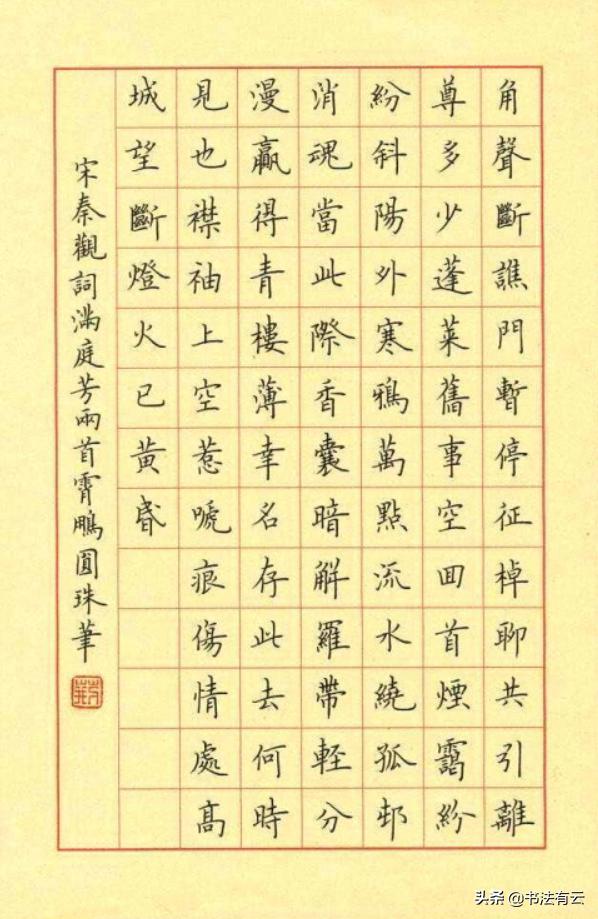 角聲斷譙門暫停征棹聊共引離
尊多少蓬萊舊事空回首煙靄紛
紛斜陽外寒鴉萬點流水繞孤邨
消魂當此際香囊暗解羅帶輕分
漫贏得青樓薄幸名存此去何時
見也襟袖上空惹唬痕傷情處高
城望斷燈火已黃昏
宋秦觀詞滿庭芳兩首霄鵬圓珠筆
头条 @书法有云